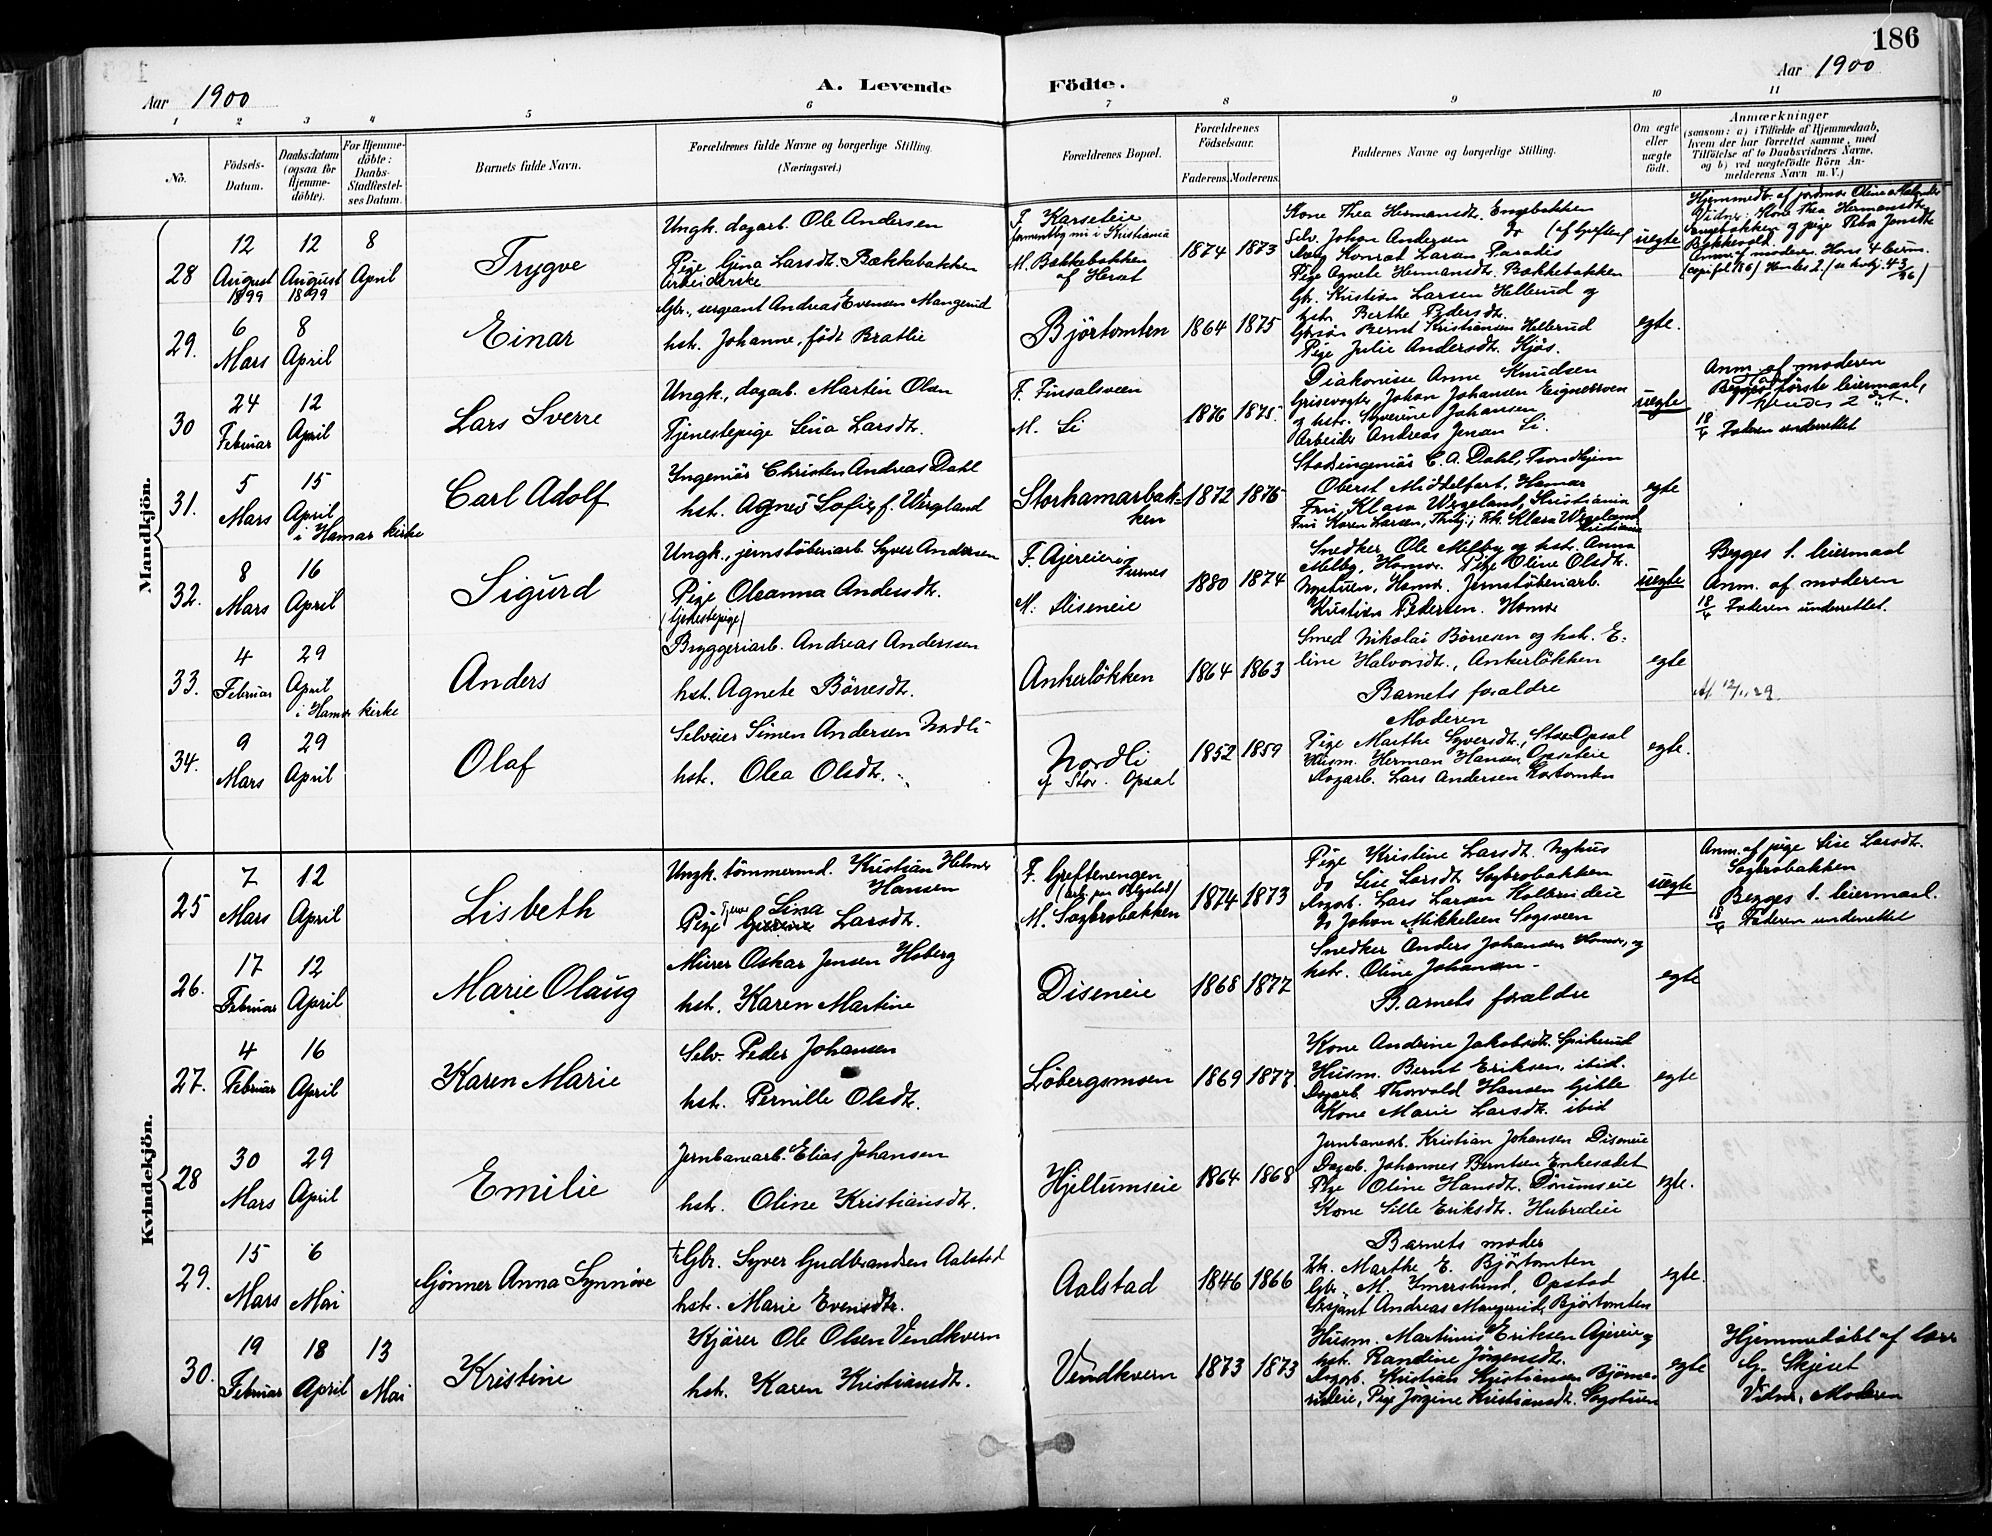 186
Aar 1900
A. Levende Födte.
Aar 1900
1 2 3 4 5 6 7 8 9 10 11
No.
Födsels-
Datum.
Daabsdatum
(ogsaa for
Hjemme-
döbte).
For Hjemme-
döbte:
Daabs-
Stadfæstel-
ses Datum.
Barnets fulde Navn.
Forældrenes fulde Navne og borgerlige Stilling.
(Næringsvei.)
Forældrenes Bopæl.
Forældrenes
Födselsaar.
Faderens. Moderens.
Faddernes Navne og borgerlige Stilling.
Om ægte
eller
uægte
födt.
Anmærkninger
(saasom: a) i Tilfælde af Hjemmedaab,
hvem der har forrettet samme, med
Tilföielse af to Daabsvidners Navne,
og b) ved uægtefödte Börn An-
melderens Navn m. V.)
Mandkjön.
28
12
August
1899
12
August
1899
8
April
Trygve
Ungk. dagarb. Ole Andersen
Pige Gina Larsdt. Bækkebakken
Arbeiderske
F. Karseteie
M. Bækkebakken
1874 1873
Kone Thea Hermansdt. Engebakken
Selv. Johan Andersen do
Konrad Larsen Paradis
Pige Agnete Hermansdt. Bakkebakken
uegte
Hjemmedbt. af jordmor Oline
Vidner: Kone Thea Hermansdt.
Engebakken og pige
29.
6
Mars
8
April
Einar
Gbr., sergeant Andreas Evensen Mangerud
hst. Johanne, født Bratlie
Björtomten
1864 1875
Gbr. Kristian Larsen Hellerud og
hst. Berthe Pedersdt.
Gbrsön Bernt Kristiansen Hellerud
Pige Julie Andersdt. Kjös.
egte.
30
24
Februar
12
April
Lars Sverre
Ungk., dagarb. Martin Olsen
Tjenestepige Lina Larsdt.
F. Finsalsveen
M. Li
1876 1875.
Diakonisse Anne Knudsen
Grisevogter Johan Johansen Eignersveen
og hst. Syverine Johansen
Arbeider Andreas Jensen Li.
uegte
Anm. af moderen
Begges første leiermaal,
hendes 2 det.
18/4 Faderen underrettet
31.
5
Mars
15
April
i Hamar kirke
Carl Adolf
Ingeniör Christen Andreas Dahl
hst. Agnes Sofie, f. Wergeland
Storhamarbak-
ken
1872 1876
Stadsingeniör C. A. Dahl, Trondhjem
Oberst Middelfart, Hamar
Fru Klara Wergeland, Kristiania
Fru Karen Larsen, Thhj.; Frk. Klara Wergeland
Kristiania
egte
32.
8
Mars
16
April
Sigurd
Ungk., jernstöberiarb. Syver Andersen
Pige Oleanna Andersdt.
(tjenestepige)
F. Ajereie
M. Diseneie
1880 1874
Snedker Ole Melby og hst. Anna
Melby, Hamar. Pige Oline Olsdt.
Nystuen, Hamar, Jernstöberiarb.
Kristian Pedersen. Hamar
uegte
Begges 1. leiermaal
Anm. af moderen
18/4 Faderen underrettet.
33.
4
Februar
29
April
i Hamar kirke
Anders
Bryggeriarb. Andreas Anderssen
hst. Agnete Börresdt.
Ankerlökken
1864 1863
Smed Nikolai Börresen og hst. E-
line Halvorsdt., Ankerlökken
Barnets foraldre
egte
34.
9
Mars
29
April
Olaf
Selveier Simen Andersen Nordli
hst. Olea Olsdt.
Nordli
af Stor. Opsal
1852 1859
Moderen
Pige Marthe Syversdt., Stor Opsal
Husm. Herman Hansen Opsaleie
Dagarb. Lars Andersen
egte.
Kvindekjön.
25
7
Mars
12
April
Lisbeth
Ungk. tömmermd. Kristian Helmer
Hansen
Pige Lina Larsdt.
F. Greftenengen
M. Sagbrobakken
1874 1873
Pige Kristine Larsdt. Nyhus
do Lise Larsdt Sagbrobakken
Dagarb. Lars Larsen
do Johan Mikkelsen Sogsveen
uegte
Anm. af pige Lise Larsdt.
Sagbrobakken
Begges 1. leiermaal.
18/4 Faderen underrettet
26.
17
Februar
12
April
Marie Olaug
Murer Oskar Jensen Hoberg
hst. Karen Martine
Diseneie
1868 1877
Snedker Anders Johansen Hamar, og
hst. Oline Johansen
Barnets foraldre
egte
27.
4
Februar
16
April
Karen Marie
Selv. Peder Johansen
hst. Pernille Olsdt.
Löbergsmoen
1869 1877.
Kone Andrine Jakobsdt. Spikerud
Husm. Bernt Eriksen, ibid.
Dagarb. Thorvald Hansen Gihle
Kone Marie Larsdt. ibid
egte
28
30
Mars
29
April
Emilie
Jernbanearb. Elias Johansen
hst. Oline Kristiansdt.
Hjellumseie
1864 1868
Jernbanearb. Kristian Johansen Diseneie
Dagarb. Johannes Berntsen Enkesædet
Pige Oline Hansdt. Dörumseie
Kone Sille Eriksdt. Hubredeie
egte.
29.
15
Mars
6
Mai
Gjönner Anna Synnöve
Gbr. Syver Gudbrandsen Aalstad
hst. Marie Evensdt.
Aalstad
1846 1866
Barnets moder
Frk. Marthe E. Björtomten
Gbr. M. Imerslund, Opstad
Sersjant Andreas Mangerud, Björtomten
egte.
30.
19
Februar
18
April
13
Mai
Kristine
Kjörer Ole Olsen Vendkvern
hst. Karen Kristiansdt.
Vendkvern
1873 1873
Husm. Martinus Eriksen Ajereie og
hst. Randine Jörgensdt.
Dagarb. Kristian Kristiansen Björne-
rudeie, Pige Jörgine Kristiansdt. Sagstuen
egte
Hjemmedöbt af lærer
G. Skjeset
Vidner, Moderen